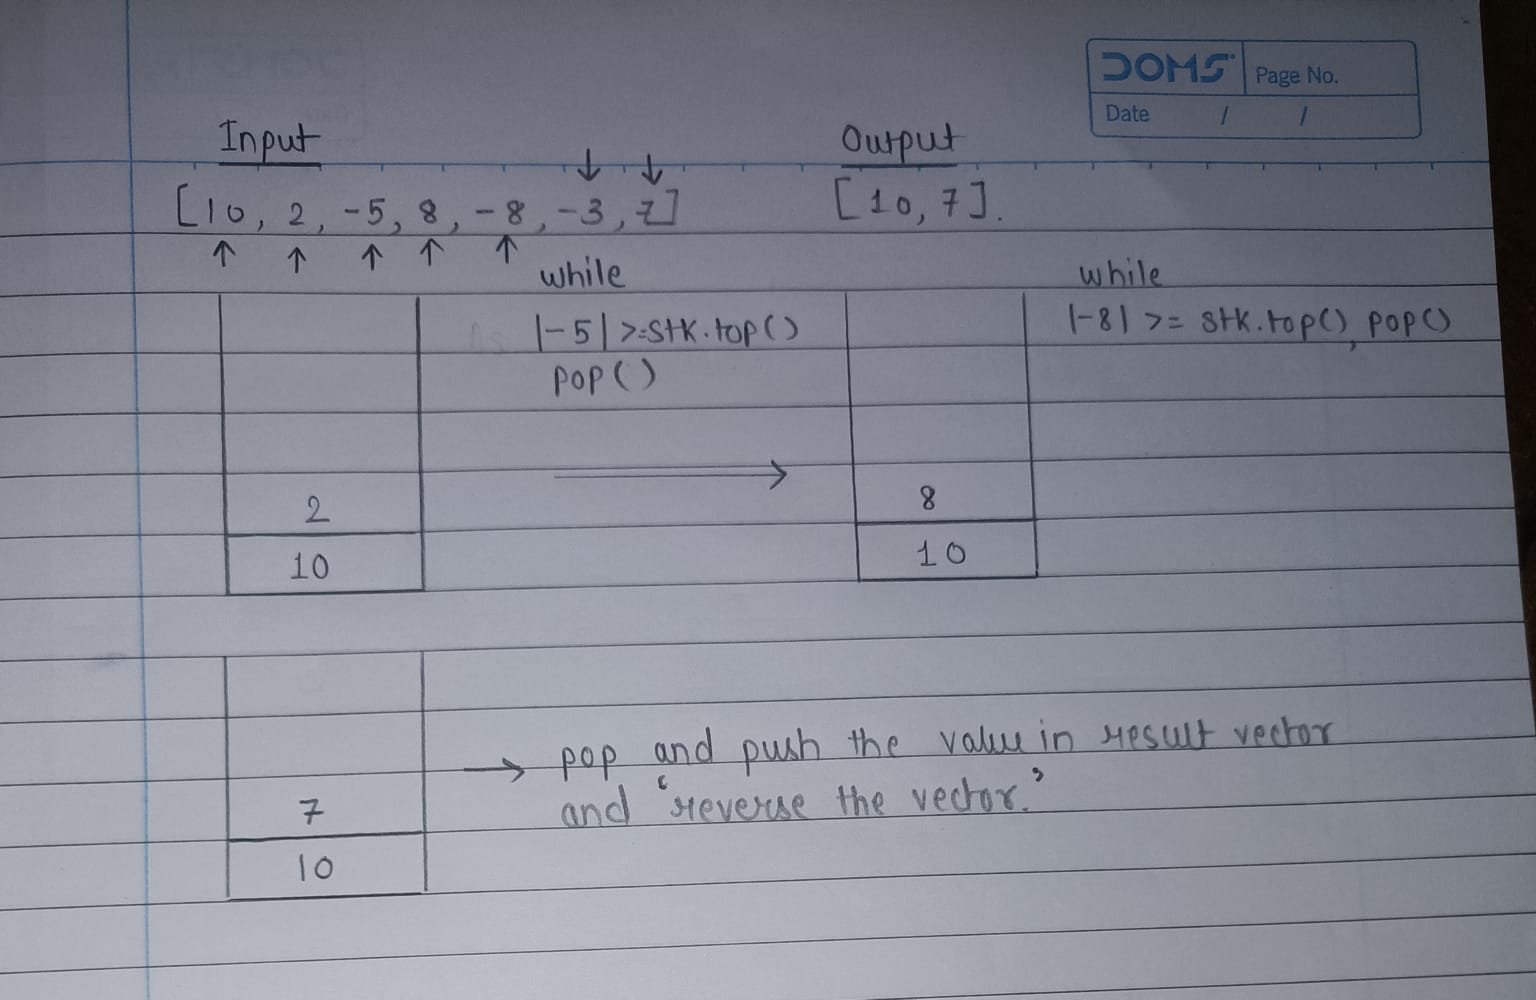 DOMS Page No.
Date / /
Input Output
[10, 2, -5, 8, -8, -3, 7] [10, 7].
while
|-5| >= stk.top()
pop()
while
|-8| >= stk.top(), pop()
2
10
8
10
7
10
→ pop and push the value in result vector
and ‘reverse the vector.’